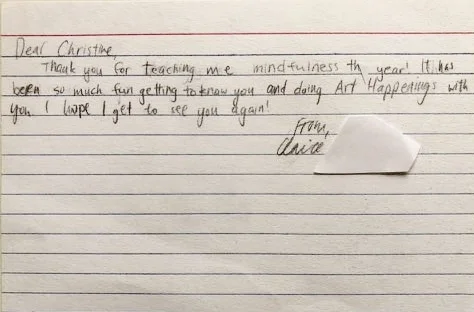 Dear Christine,
Thank you for teaching me mindfulness th year! It has
been so much fun getting to know you and doing Art Happenings with
you I hope I get to see you again!
From,
Claire